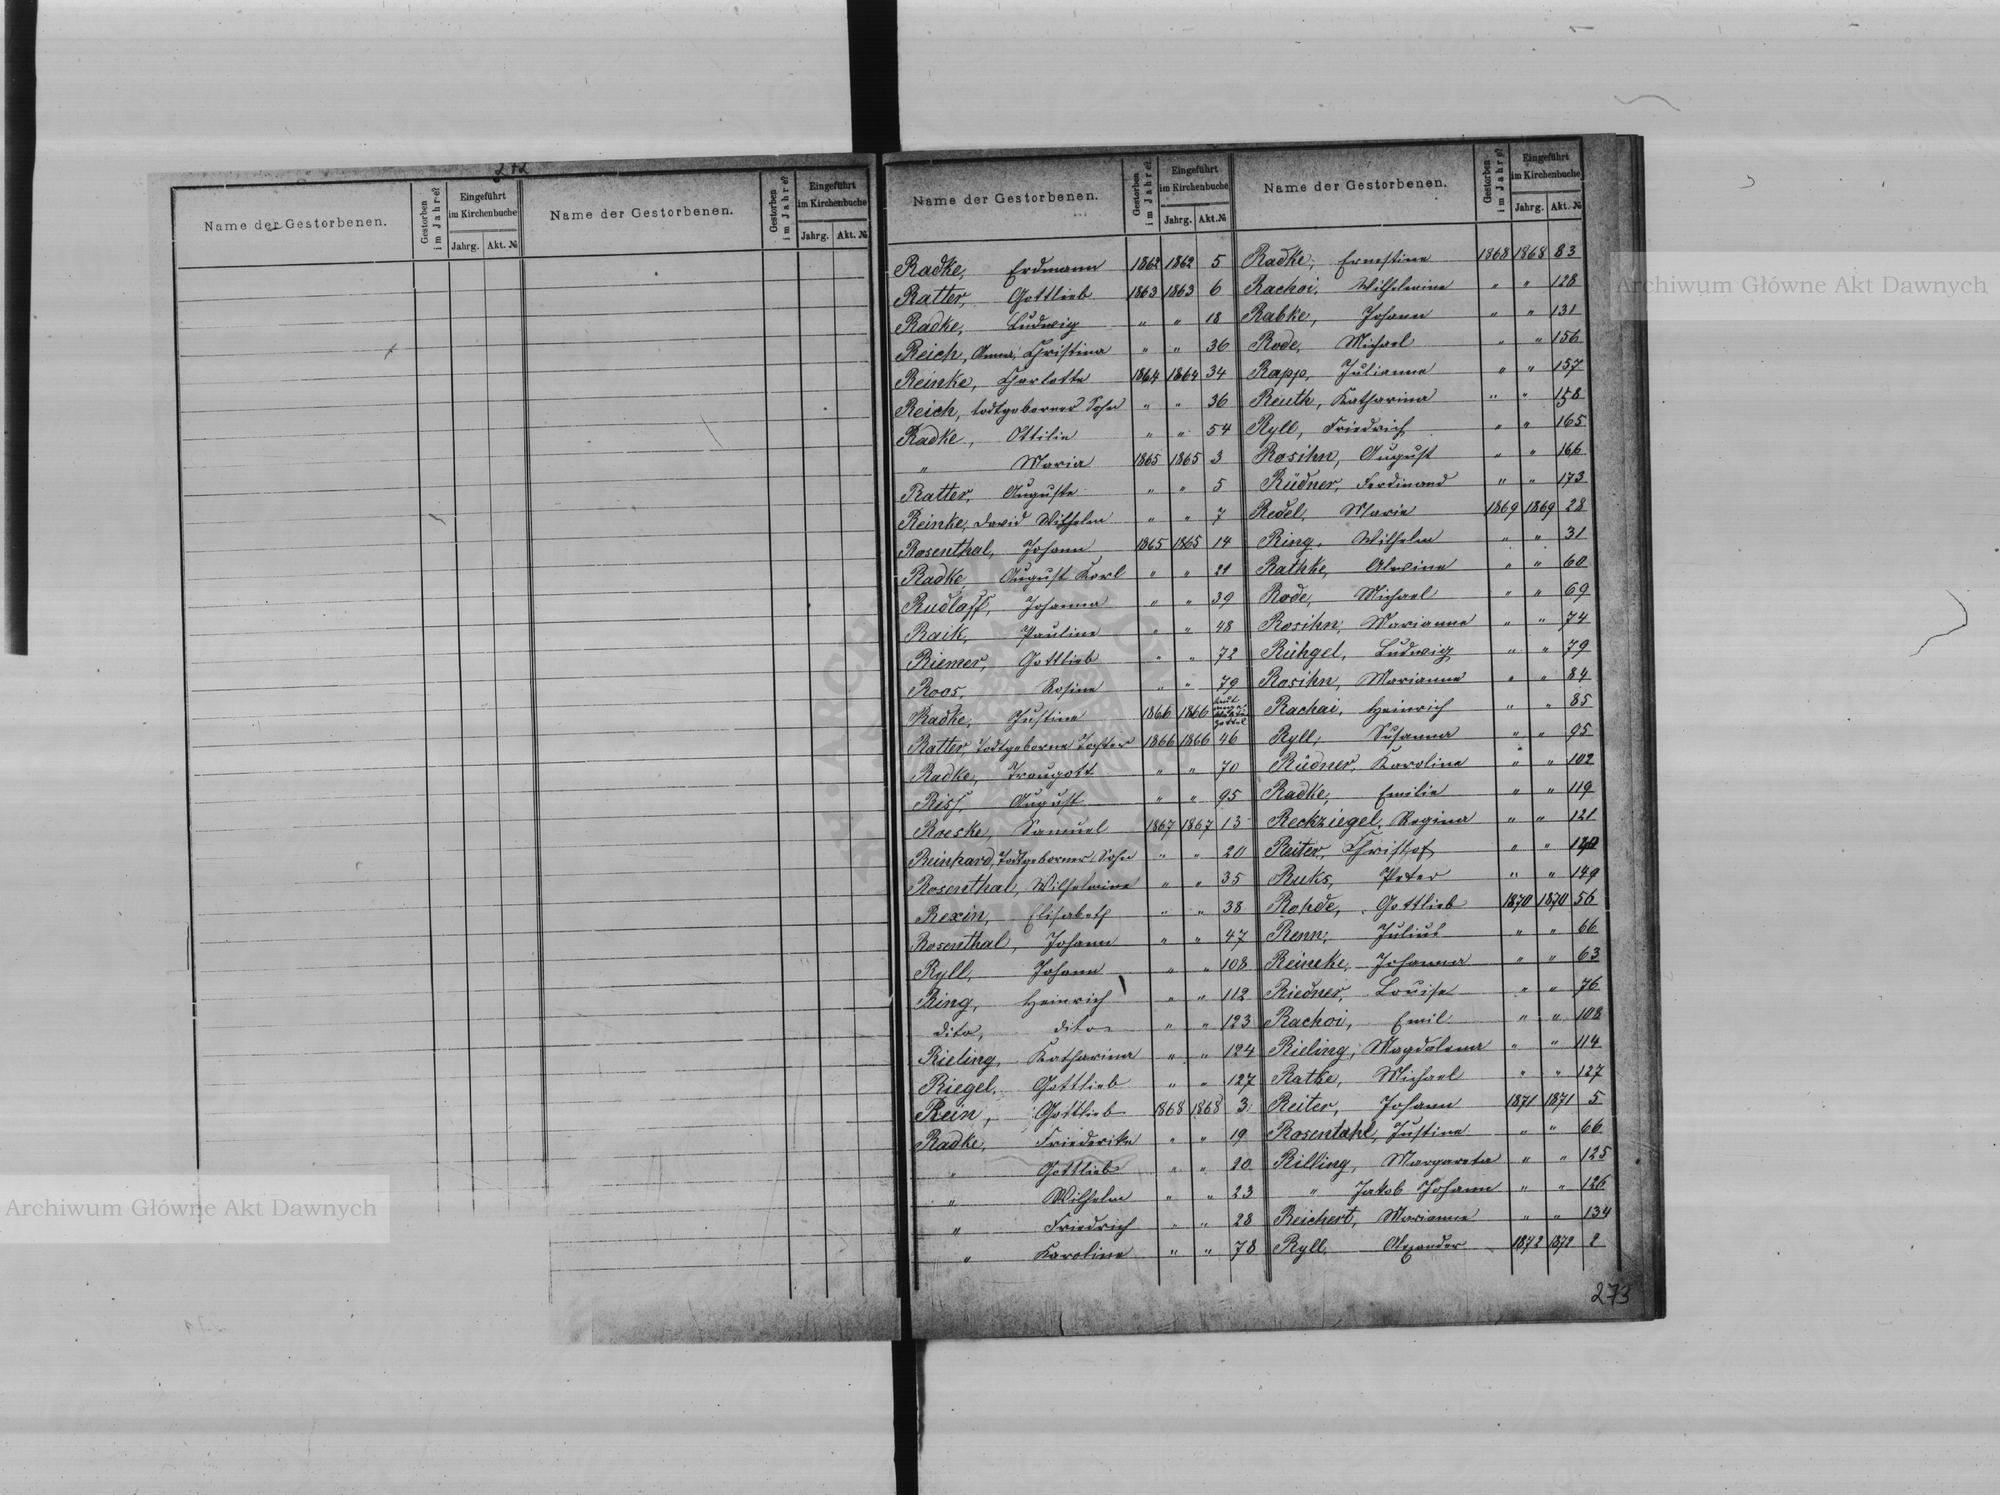 272
Name der Gestorbenen. Gestorben im Jahre? Eingeführt im Kirchenbuche Jahrg. Akt. №
Name der Gestorbenen. Gestorben im Jahre? Eingeführt im Kirchenbuche Jahrg. Akt. №
Name der Gestorbenen. Gestorben im Jahre? Eingeführt im Kirchenbuche Jahrg. Akt. №
Radke, Erdmann 1862 1862 5
Ratter, Gottlieb 1863 1863 6
Radke, Ludwig " " 18
Reich, Anna Christina " " 36
Reinke, Charlotte 1864 1864 34
Reich, todtgeborner Sohn " " 36
Radke, Ottilie " " 54
" Maria 1865 1865 3
Ratter, Auguste " " 5
Reinke, David Wilhelm " " 7
Rosenthal, Johann 1865 1865 14
Radke, August Karl " " 21
Rudlaff, Johanna " " 39
Raik, Pauline " " 48
Riemer, Gottlieb " " 72
Roos, Rosine " " 79
Radke, Justine 1866 1866
Ratter, Todtgeborne Tochter 1866 1866 46
Radke, Traugott " " 70
Riss, August " " 95
Roeske, Samuel 1867 1867 13
Reinhard, Todtgeborner Sohn " " 20
Rosenthal, Wilhelmine " " 35
Rexin, Elisabeth " " 38
Rosenthal, Johann " " 47
Ryll, Johann " " 108
Ring, Heinrich " " 112
dito, dito " " 123
Rieling, Katharina " " 124
Riegel, Gottlieb " " 127
Rein, Gottlieb 1868 1868 3
Radke, Friederike " " 19
" Gottlieb " " 20
" Wilhelm " " 23
" Friedrich " " 28
" Karoline " " 78
Name der Gestorbenen. Gestorben im Jahre? Eingeführt im Kirchenbuche Jahrg. Akt. №
Radke, Ernestine 1868 1868 83
Rachoi, Wilhelmine " " 128
Rabke, Johann " " 131
Rode, Michael " " 156
Rapp, Julianne " " 157
Reuth, Katharina " " 158
Ryll, Friedrich " " 165
Rosihn, August " " 166
Rüdner, Ferdinand " " 173
Redel, Marie 1869 1869 28
Ring, Wilhelm " " 31
Rathke, Alwine " " 60
Rode, Michael " " 69
Rosihn, Marianne " " 74
Rühgel, Ludwig " " 79
Rosihn, Marianne " " 84
Rachai, Heinrich " " 85
Ryll, Susanna " " 95
Rüdner, Karoline " " 102
Radke, Emilie " " 119
Reckziegel, Regina " " 121
Reiter, Christof " "
Ruks, Peter " " 149
Rohde, Gottlieb 1870 1870 56
Renn, Julius " " 66
Reineke, Johanna " " 63
Riedner, Louise " " 76
Rachoi, Emil " " 108
Rieling, Magdalena " " 114
Ratke, Michael " " 127
Reiter, Johann 1871 1871 5
Rosentahl, Justine " " 66
Rilling, Margareta " " 125
" Jakob Johann " " 126
Reichert, Marianne " " 134
Ryll, Alexander 1872 1872 2
273
Archiwum Główne Akt Dawnych
Archiwum Główne Akt Dawnych